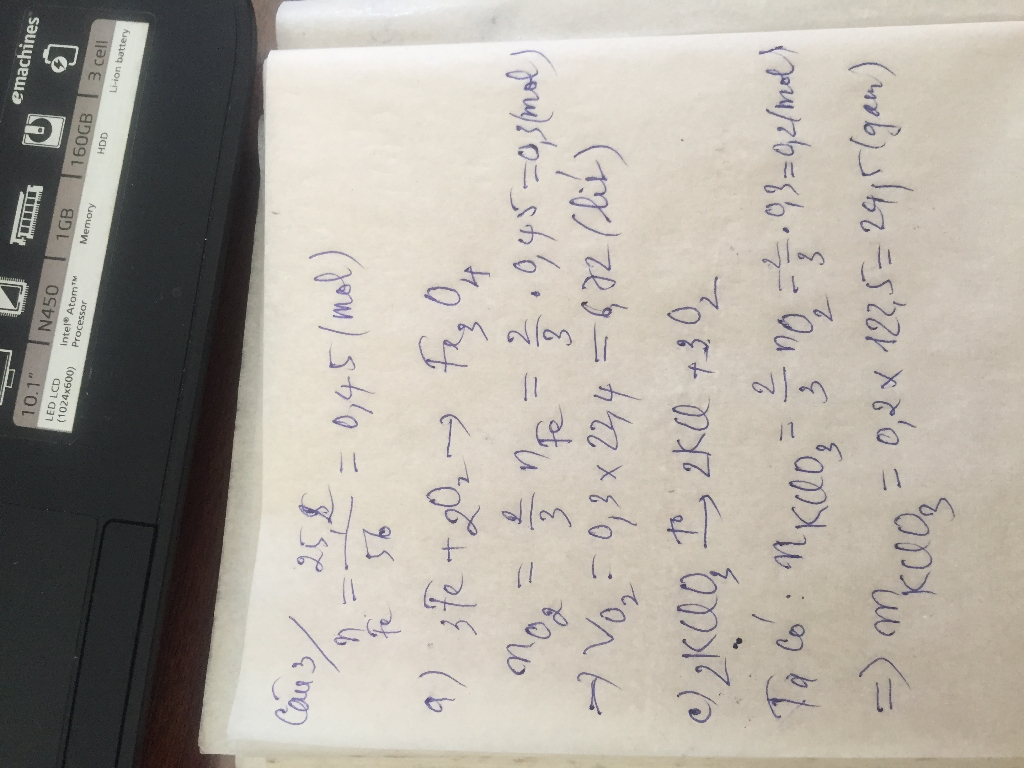 emachines
10.1" | N450 | 1GB | 160GB | 3 cell
LED LCD (1024x600) Intel® Atom™ Processor Memory HDD Li-ion battery
Câu 3/
n Fe = 25,2/56 = 0,45 (mol)
a) 3Fe + 2O2 → Fe3O4
nO2 = 2/3 nFe = 2/3 . 0,45 = 0,3 (mol)
→ VO2 = 0,3 x 22,4 = 6,72 (lít)
c) 2KClO3 t° → 2KCl + 3O2
Ta có: nKClO3 = 2/3 nO2 = 2/3 . 0,3 = 0,2 (mol)
=> mKClO3 = 0,2 x 122,5 = 24,5 (gam)